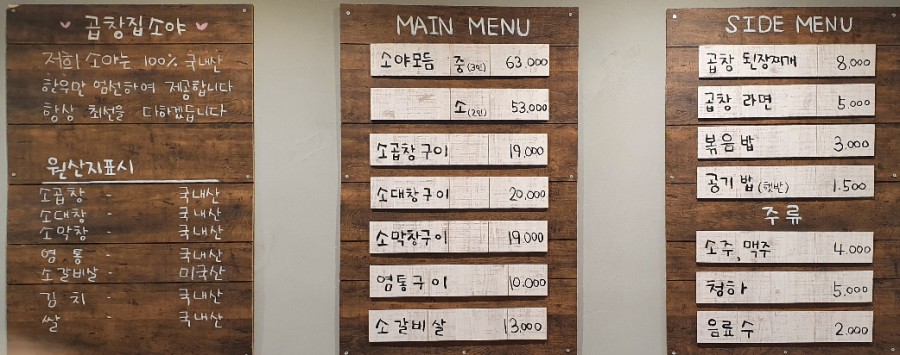 곱창집소야
저희 소야는 100% 국내산
한우만 엄선하여 제공합니다
항상 최선을 다하겠습니다
원산지표시
소곱창 - 국내산
소대창 - 국내산
소막창 - 국내산
염통 - 국내산
소갈비살 - 미국산
김치 - 국내산
쌀 - 국내산
MAIN MENU
소야모듬 중(3인) 63,000
소(2인) 53,000
소곱창구이 19,000
소대창구이 20,000
소막창구이 19,000
염통구이 10,000
소갈비살 13,000
SIDE MENU
곱창 된장찌개 8,000
곱창 라면 5,000
볶음밥 3,000
공기밥(햇반) 1.500
주류
소주, 맥주 4,000
청하 5,000
음료수 2,000